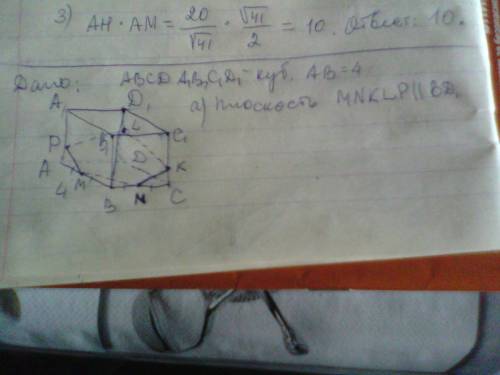 3) AH · AM = 20/√41 · √41/2 = 10. Ответ: 10.
Дано: ABCD A₁B₁C₁D₁ - куб. AB = 4
а) Плоскость MNKLP || BD₁
A₁ D₁
B₁ L C₁
P D
A K
4 M
B N C